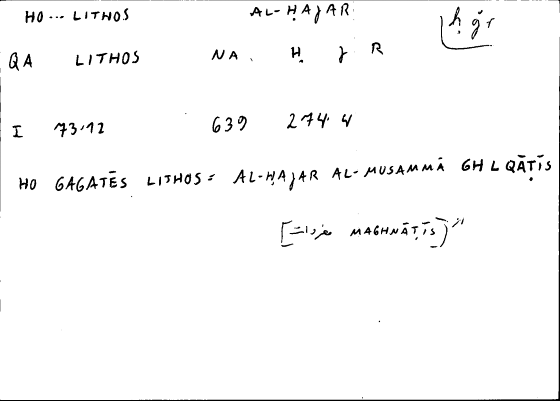 HO... LITHOS AL-ḤAJAR ḥ ǧ r
QA LITHOS NA. Ḥ J R
I 73.12 639 274.4
HO GAGATĒS LITHOS = AL-ḤAJAR AL-MUSAMMĀ GH L QĀṬĪS
[مفردات MAGHNĀṬĪS)